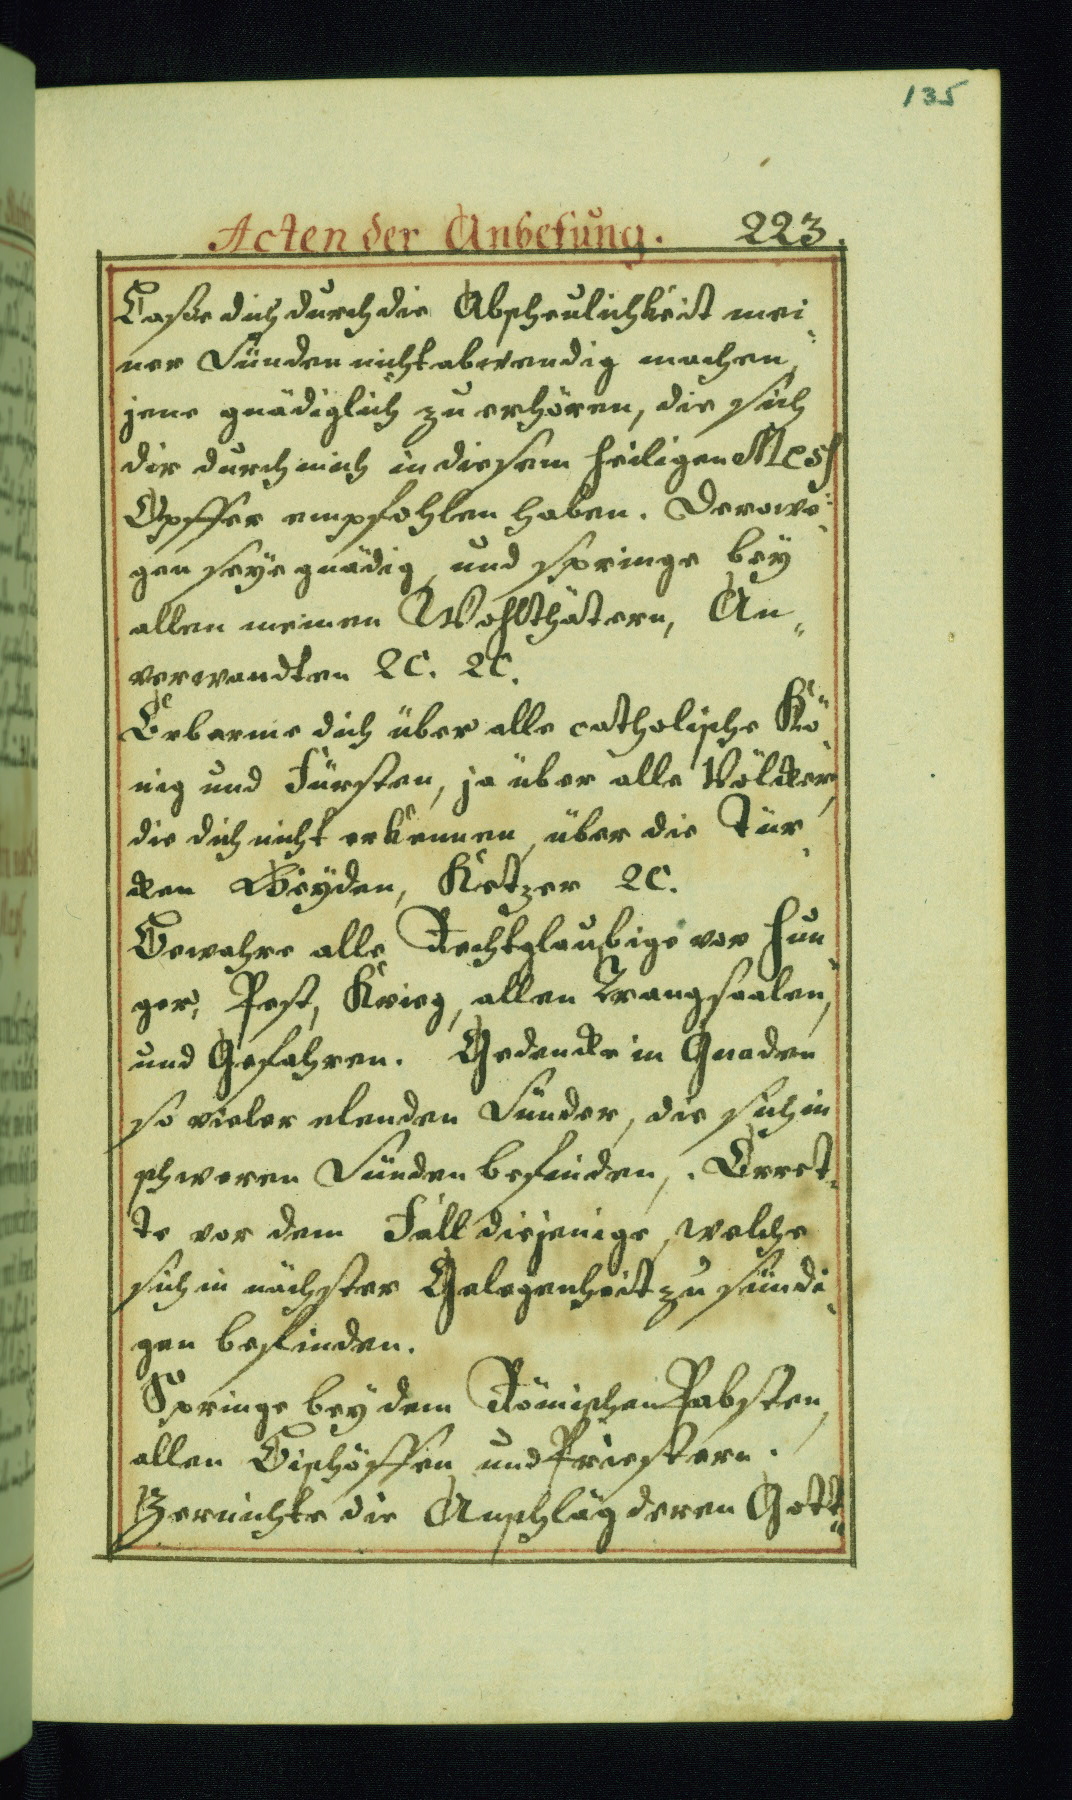 135
Acten der Anbetung. 223.
Lasse dich durch die Abscheulichkeit mei-
ner Sünden nicht abwendig machen,
jene gnädiglich zu erhören, die sich
dir durch mich in diesem heiligen Mess
Opffer empfohlen haben. Derowe-
gen seye gnädig, und springe bey
allen meinen Wohlthätern, An-
verwandten ec. ec.
Erbarme dich über alle catholische Kö-
nig und Fürsten, ja über alle Völcker,
die dich nicht erkennen, über die Tür-
cken Heyden, Ketzer ec.
Bewahre alle Rechtglaubige vor Hun-
ger, Pest, Krieg, allen Trangsaalen,
und Gefahren. Gedencke in Gnaden
so vieler elenden Sünder, die sich in
schweren Sünden befinden, Erret-
te vor dem Fall diejenige, welche
sich in nächster Gelegenheit zu sündi-
gen befinden.
Springe bey dem Römischen Pabsten,
allen Bischöffen und Priestern.
Zernichte die Anschläg deren Gott-